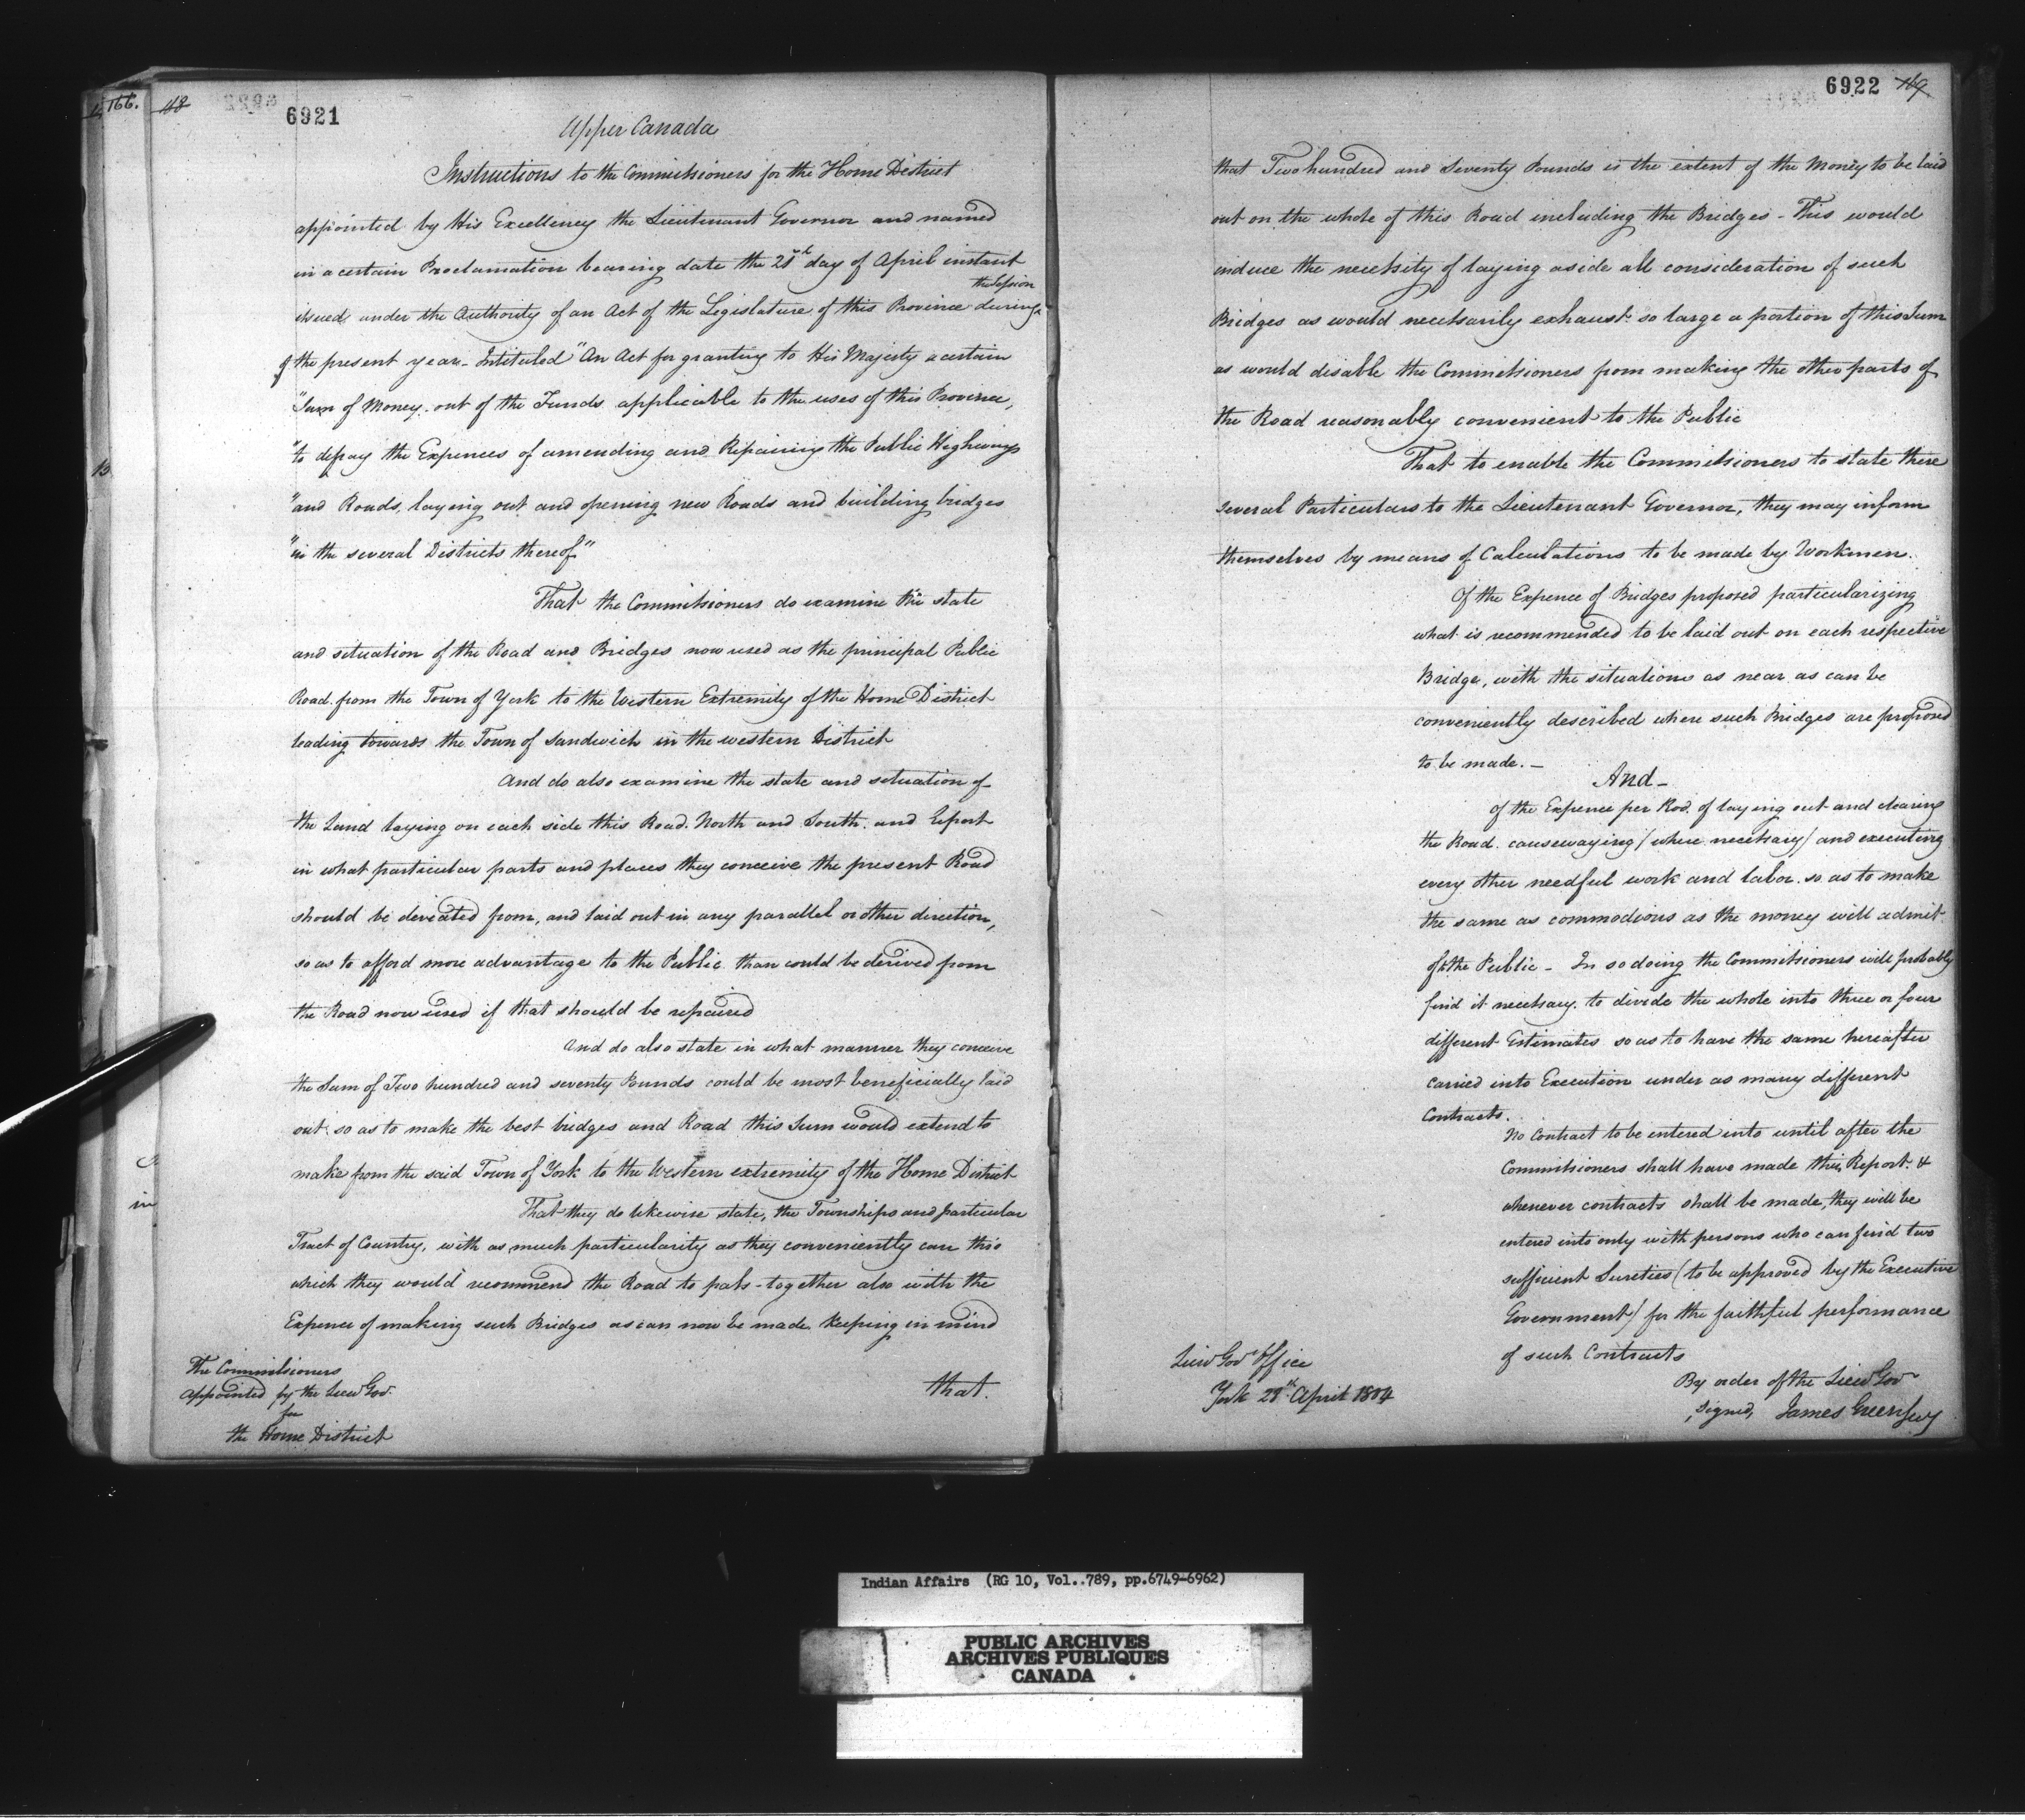 166.
118
6921
Upper Canada
Instructions to the Commissioners for the Home District
appointed by His Excellency the Lieutenant Governor and named
in a certain Proclamation bearing date the 28th day of April instant
the Session
issued under the Authority of an Act of the Legislature of this Province during
of the present year - Intituled "An Act for granting to His Majesty a certain
"Sum of Money out of the Funds applicable to the uses of this Province,
"to defray the Expences of amending and Repairing the Public Highways
"and Roads, laying out and opening new Roads and building bridges
"in the several Districts thereof"
That the Commissioners do examine the state
and situation of the Road and Bridges now used as the principal Public
Road from the Town of York to the Western Extremity of the Home District
leading towards the Town of Sandwich in the western District
And do also examine the state and situation of
the Land laying on each side this Road North and South and Report
in what particular parts and places they conceive the present Road
should be deviated from, and laid out in any parallel or other direction,
so as to afford more advantage to the Public than could be derived from
the Road now used if that should be repaired
And do also state in what manner they conceive
the Sum of Two hundred and seventy Pounds could be most beneficially laid
out so as to make the best bridges and Road this Sum would extend to
make from the said Town of York to the Western extremity of the Home District
That they do likewise state, the Townships and particular
Tract of Country, with as much particularity as they conveniently can thro
which they would recommend the Road to pass - together also with the
Expence of making such Bridges as can now be made keeping in mind
The Commissioners
appointed by the Lieut Gov.
for
the Home District
that.
6922
169
that Two hundred and Seventy Pounds is the extent of the Money to be laid
out on the whole of this Road including the Bridges - This would
induce the necessity of laying aside all consideration of such
Bridges as would necessarily exhaust so large a portion of this Sum
as would disable the Commissioners from making the other parts of
the Road reasonably convenient to the Public
That to enable the Commissioners to state these
several Particulars to the Lieutenant Governor, they may inform
themselves by means of Calculations to be made by Workmen.
Of the Expence of Bridges proposed particularizing
what is recommended to be laid out on each respective
Bridge, with the situations as near as can be
conveniently described where such Bridges are proposed
to be made. -
And -
Of the Expence per Rod of laying out and clearing
the Road causewaying (where necessary) and executing
every other needful work and labor so as to make
the same as commodious as the money will admit
of to the Public - In so doing the Commissioners will probably
find it necessary to divide the whole into three or four
different Estimates so as to have the same hereafter
carried into Execution under as many different
Contracts.
No Contract to be entered into until after the
Commissioners shall have made their Report &
whenever contracts shall be made, they will be
entered into only with persons who can find two
sufficient Sureties (to be approved by the Executive
Government) for the faithful performance
of such Contracts
Lieut Govr Office
York 28th April 1804
By order of the Lieut Govr
Signed, James Green Secy
Indian Affairs (RG 10, Vol..789, pp.6749-6962)
PUBLIC ARCHIVES
ARCHIVES PUBLIQUES
CANADA